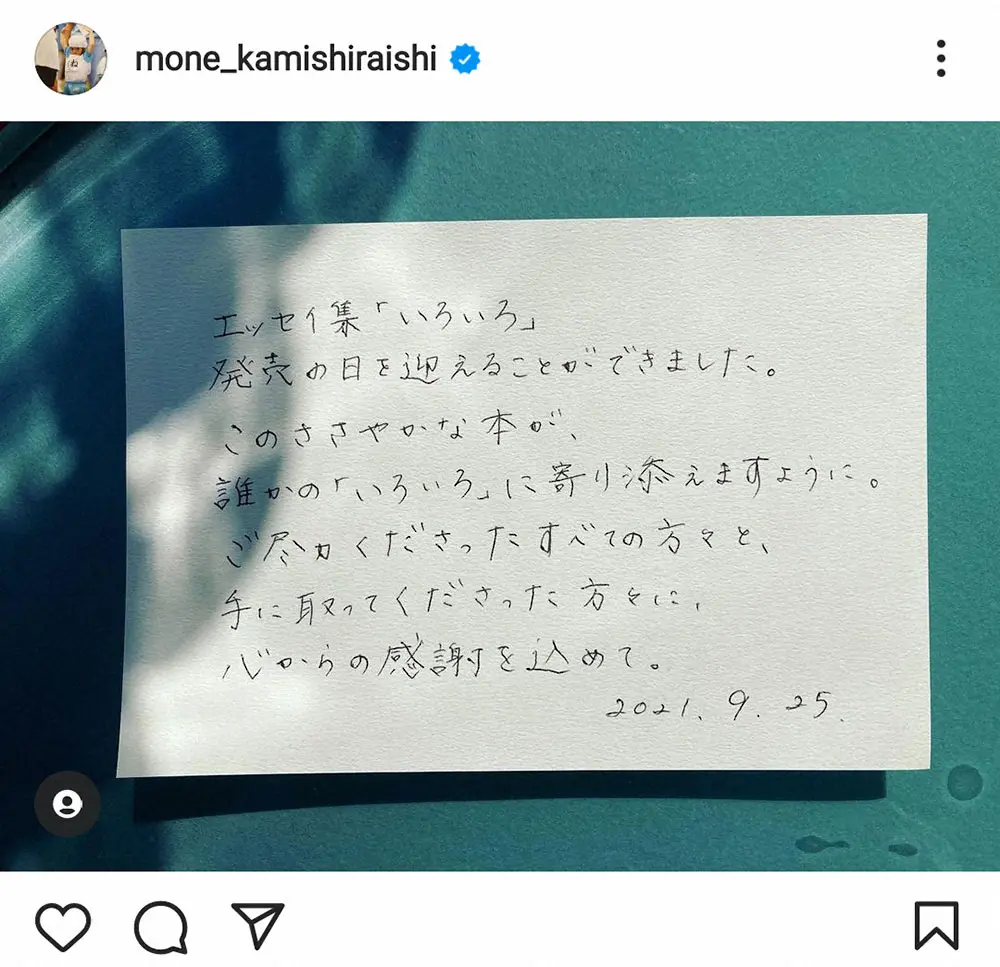 mone_kamishiraishi
エッセイ集「いろいろ」
発売の日を迎えることができました。
このささやかな本が、
誰かの「いろいろ」に寄り添えますように。
ご尽力くださったすべての方々と、
手に取ってくださった方々に、
心からの感謝を込めて。
2021. 9. 25.